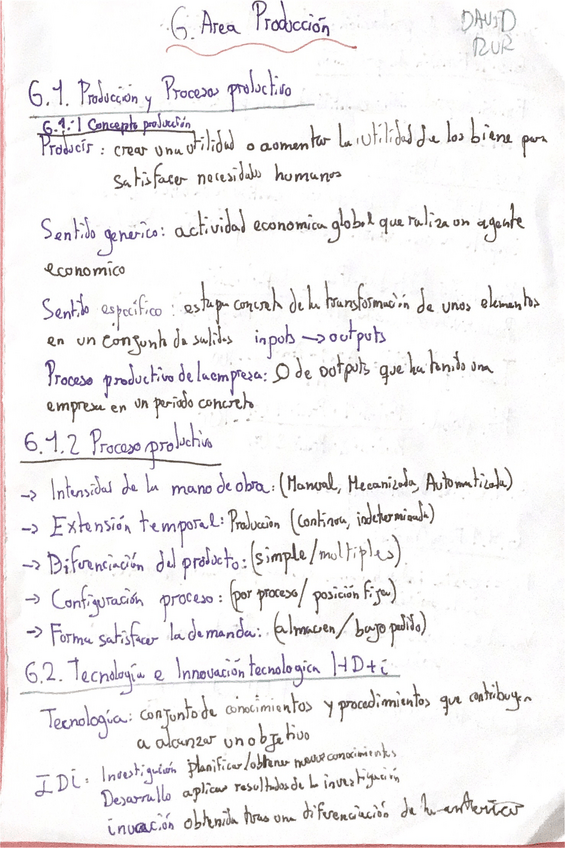 6. Area Producción
DAVID
RUR
6.1. Producción y Proceso productivo
6.1.1 Concepto producción
Producir: crear una utilidad o aomentar la utilidad de los biene para
satisfacer necesidades humanas
Sentido generico: actividad economica global que raliza un agente
economico
Sentido específico: etapa concreta de la transformación de unos elementos
en un conjunto de salidas inputs → outputs
Proceso productivo de la empresa: O de outputs que ha tenido una
empresa en un periodo concreto
6.1.2 Proceso productivo
→ Intensidad de la mano de obra: (Manual, Mecanizada, Automatizada)
→ Extensión temporal: Producción (continua, indeterminada)
→ Diferenciación del producto: (simple/multiples)
→ Configuración proceso: (por proceso/posición fija)
→ Forma satisfacer la demanda: (almacen/bajo pedido)
6.2. Tecnología e Innovación tecnologica I+D+i
Tecnología: conjunto de conocimientos y procedimientos que contribuyen
a alcanzar un objetivo
IDi: Investigación planificar/obtener nuevos conocimientos
Desarrollo aplicar resultados de la investigación
inovación obtenida tras una diferenciación de lo anterior